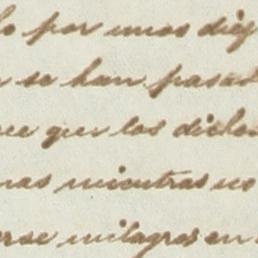 lo por unos diez
se han pasad
que los dichos
mas mientras no
erse milagros en